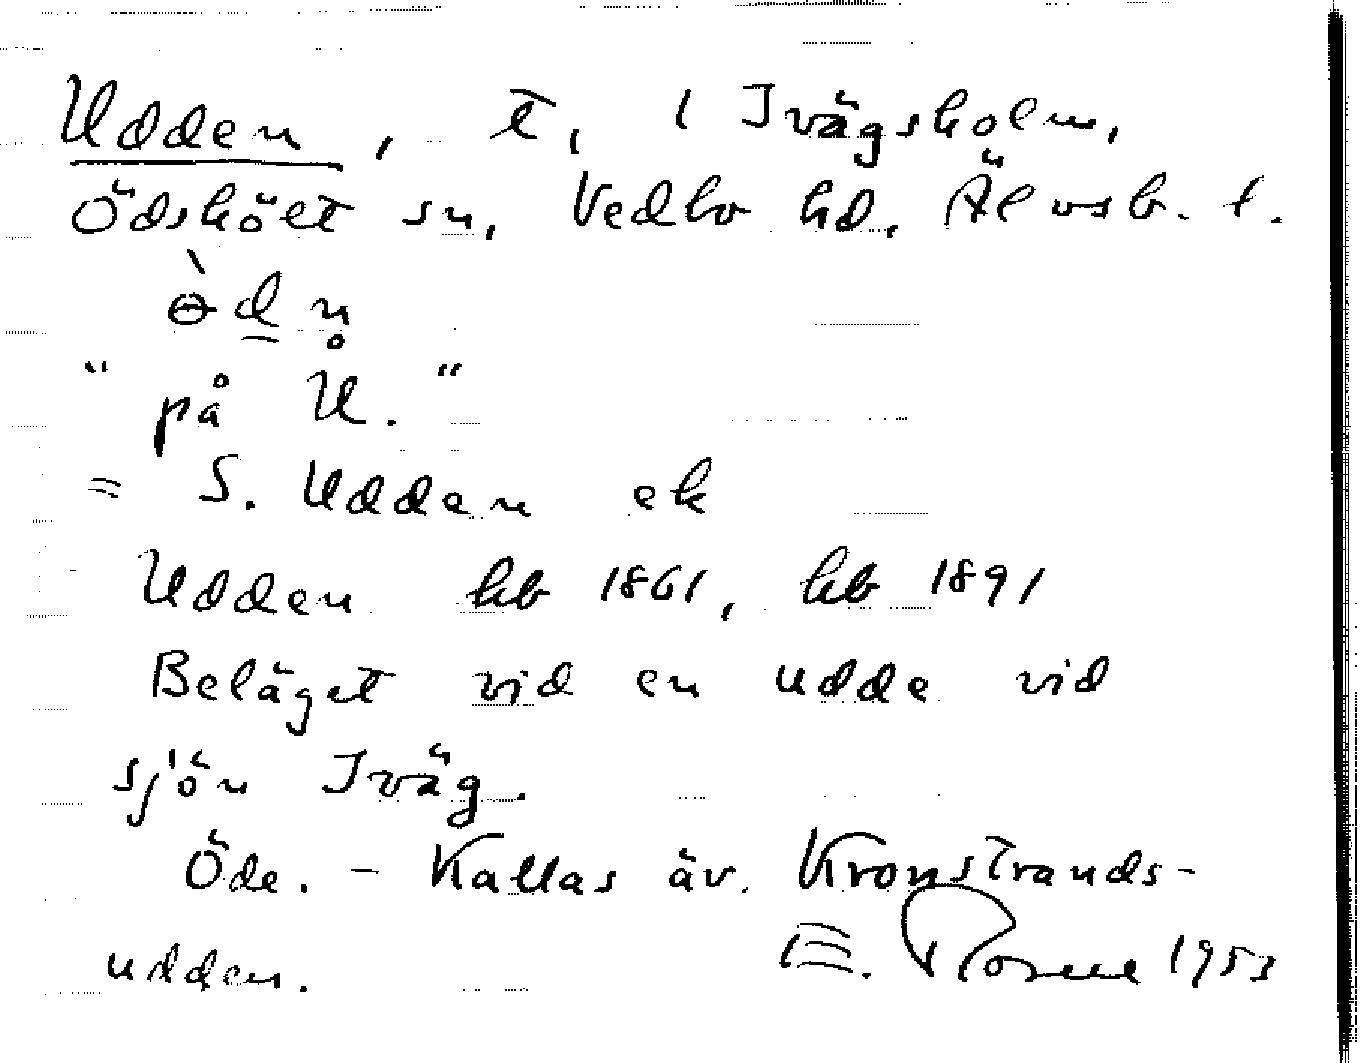 Udden, t, 1 Ivägsholm,
Ödskölt sn, Vedbo hd, Älvsb. l.
ɵ̀dn̥
"på U."
= S. Udden ek
Udden hb 1861, hb 1891
Beläget vid en udde vid
sjön Iväg.
Öde. - Kallas äv. Kronstrands-
udden. E. 1953